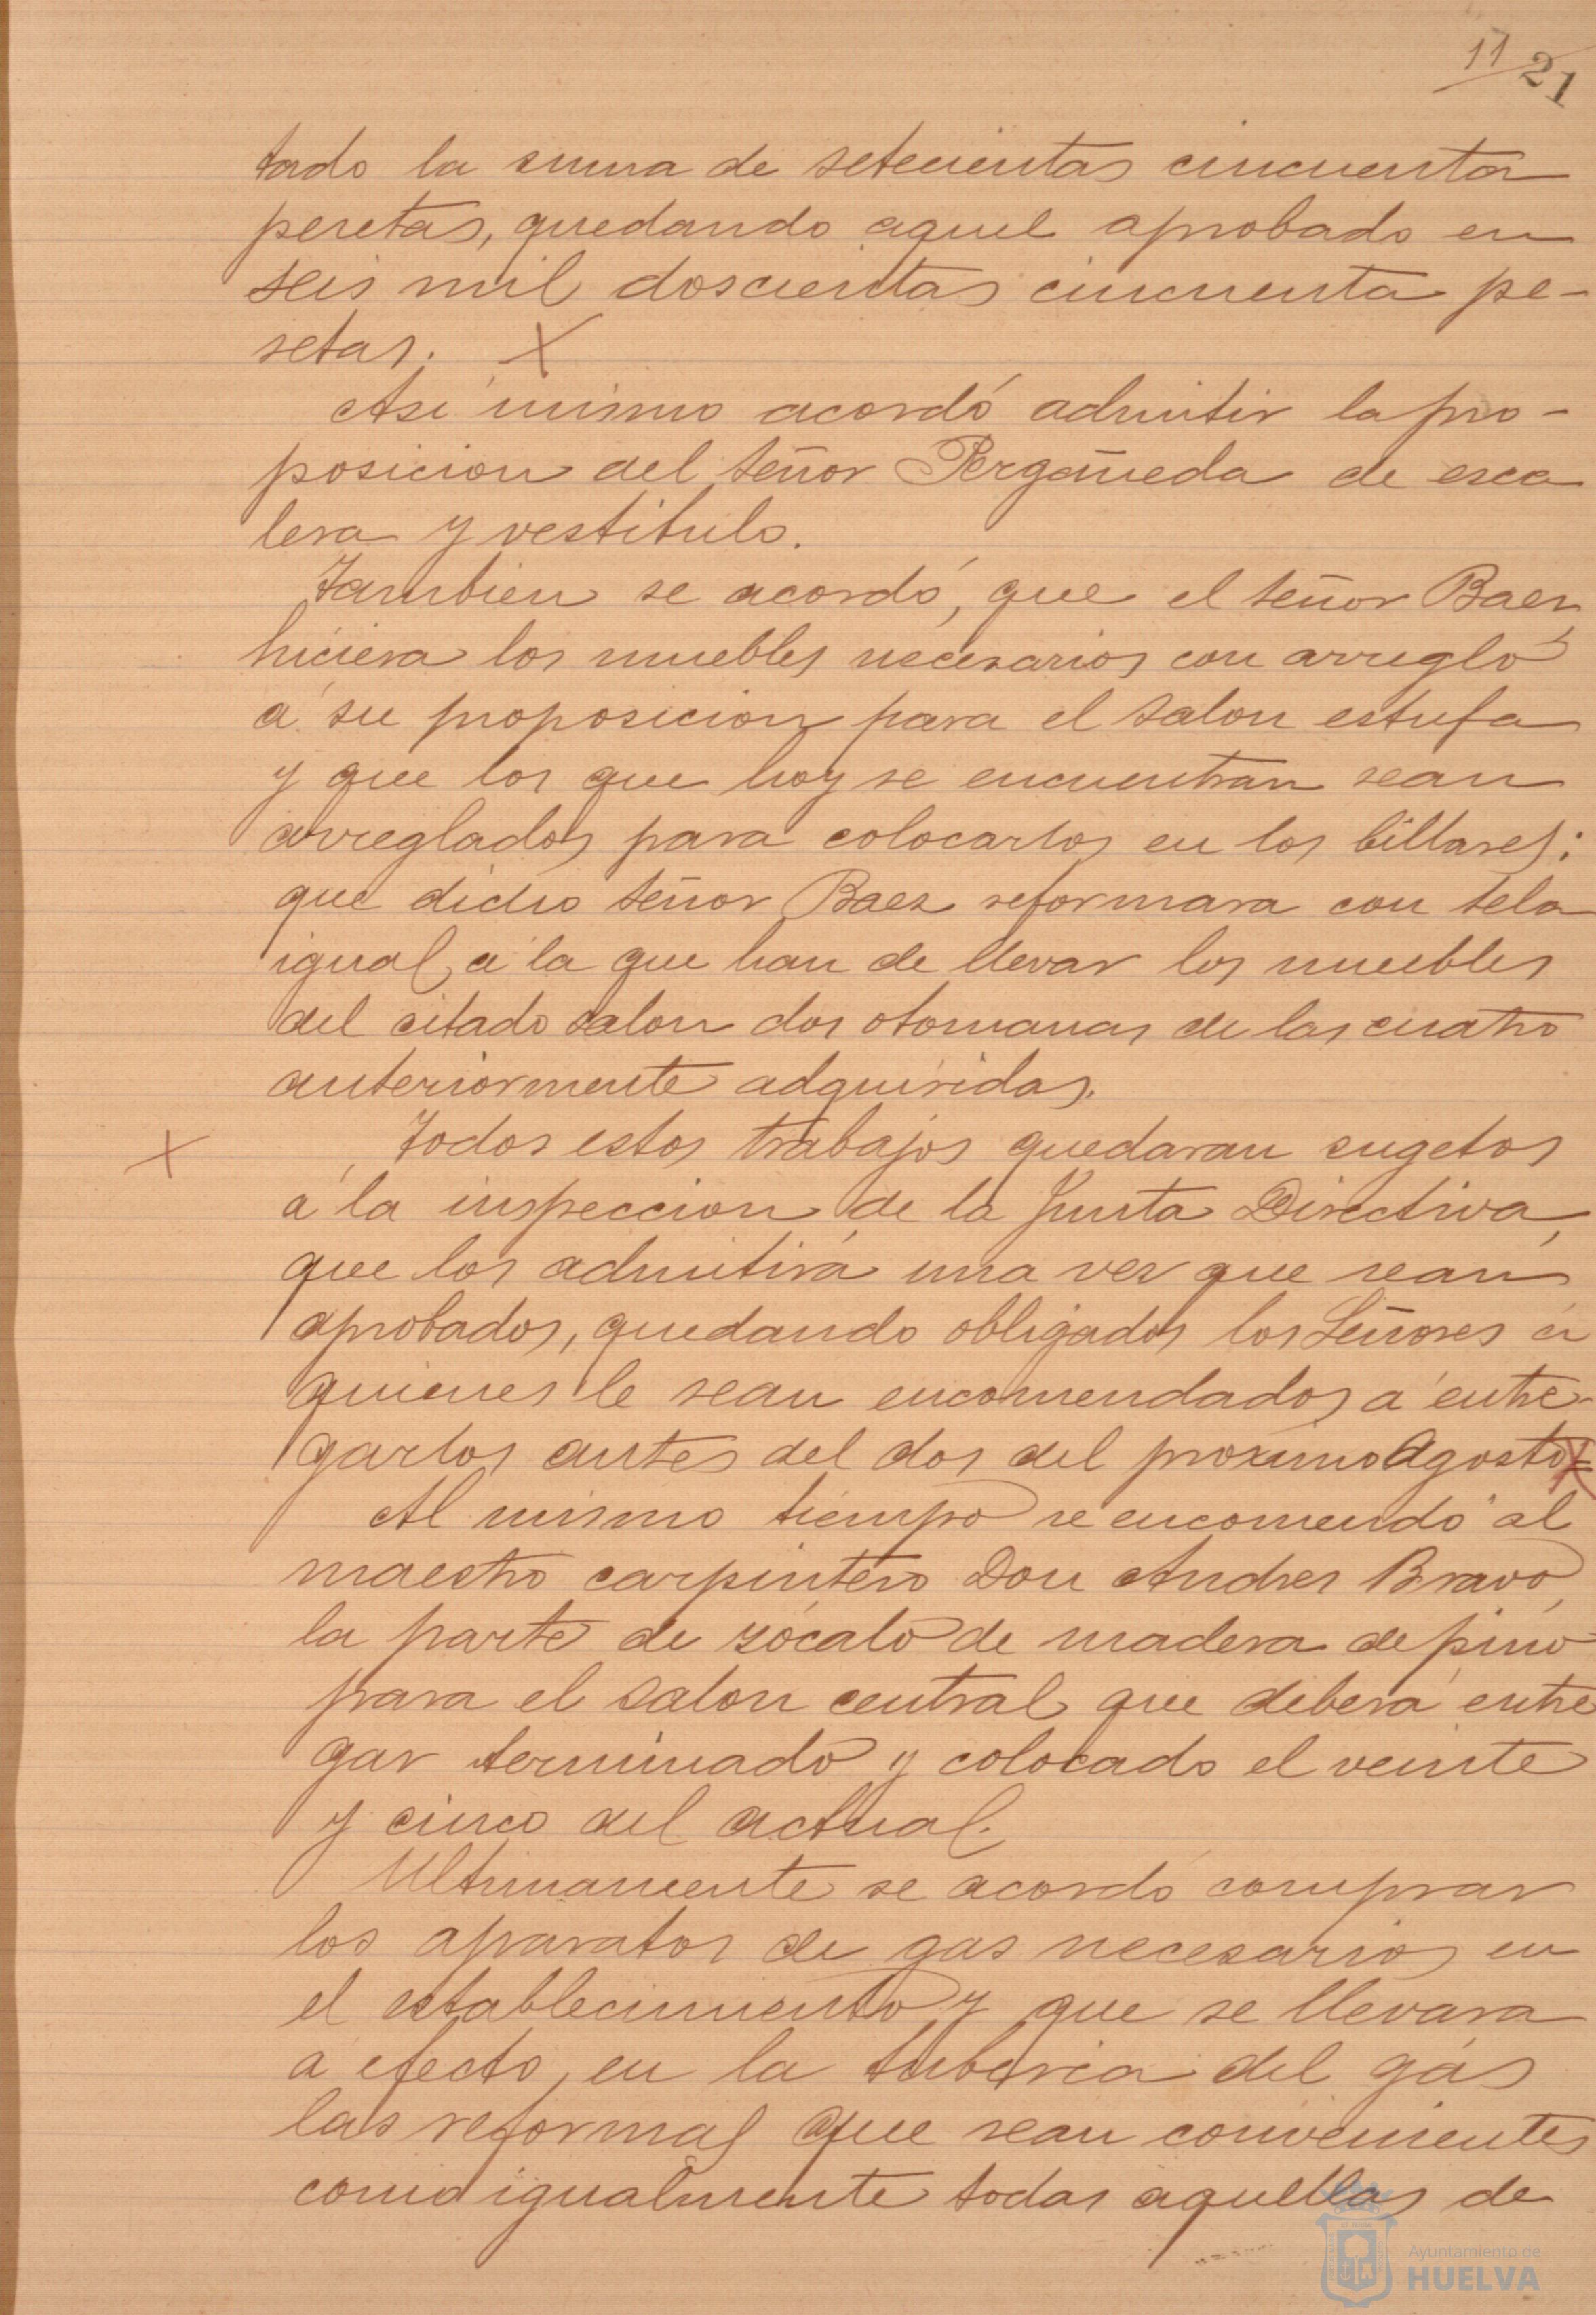 11 21
tado la suma de setecientas cincuenta
pesetas, quedando aquel aprobado en
seis mil doscientas cincuenta pe-
setas. X
Asi mismo acordó admitir la pro-
posicion del señor Pergañeda de esca
lera y vestibulo.
Tambien se acordó, que el señor Baez
hiciera los muebles necesarios con arreglo
á su proposicion para el salon estufa
y que los que hoy se encuentran sean
arreglados para colocarlos en los billares;
que dicho señor Baez reformara con tela
igual á la que han de llevar los muebles
del citado salon dos otomanas de las cuatro
anteriormente adquiridas.
X Todos estos trabajos quedaran sugetos
á la inspeccion de la Junta Directiva,
que los admitirá una vez que sean
aprobados, quedando obligados los Señores á
quienes le sean encomendados á entre-
garlos antes del dos del proximo Agosto=
Al mismo tiempo se encomendó al
maestro carpintero Don Andres Bravo,
la parte de zócalo de madera de pino
para el salon central que deberá entre
gar terminado y colocado el veinte
y cinco del actual.
Ultimamente se acordó comprar
los aparatos de gas necesarios en
el establecimiento y que se llevara
á efecto, en la tuberia del gás
las reformas que sean convenientes
como igualmente todas aquellas de
Ayuntamiento de
HUELVA